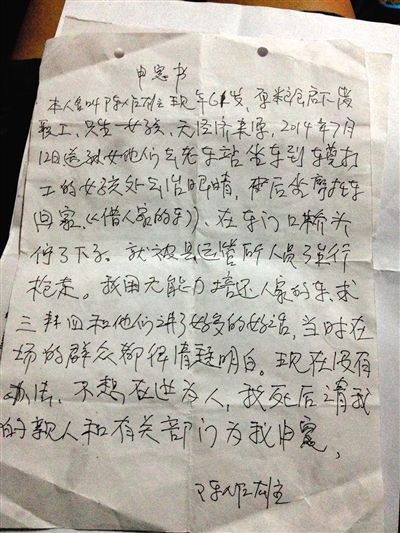 申冤书
本人名叫陈作雄主现年61岁,原粮食局下岗
职工,只生一女孩,无经济来源,2014年7月
12日送孙女他们去老车站坐车到 打
工的女孩处去治眼睛,然后坐摩托车
回家《(借人家的车)》、在东门口桥头
停了下子。就被县运管所人员强行
抢走。我因无能力赔还人家的车,求
三拜四和他们讲了好多的好话,当时在
场的群众都很清楚明白。现在没有
办法,不想在世为人,我死后请我
的亲人和有关部门为我申冤,
陈作雄主